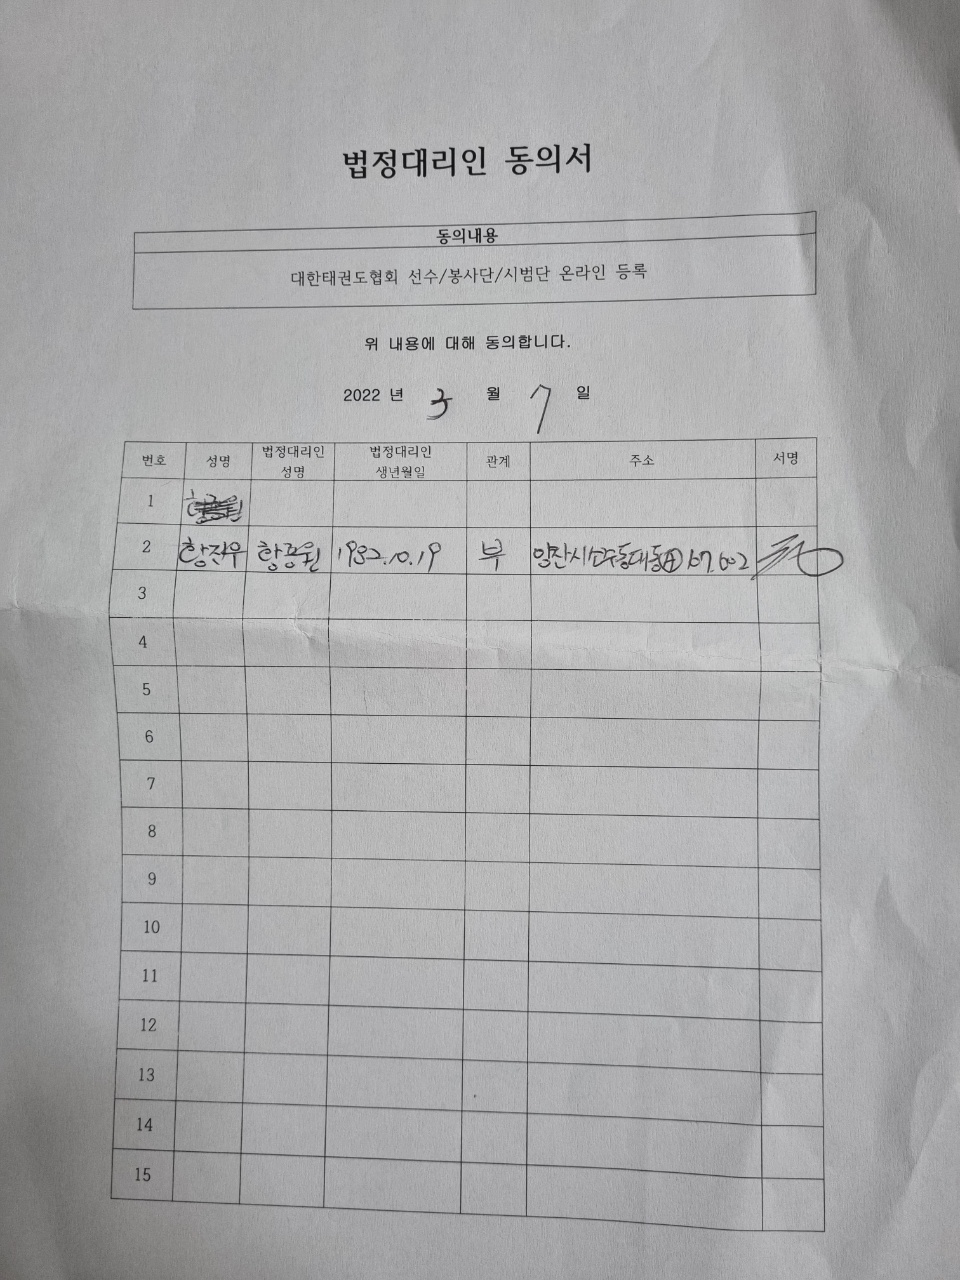 법정대리인 동의서
동의내용
대한태권도협회 선수/봉사단/시범단 온라인 등록
위 내용에 대해 동의합니다.
2022 년 3 월 7 일
번호 성명 법정대리인 성명 법정대리인 생년월일 관계 주소 서명
1
2 황진우 1982.10.19 부 양산시 107.602
3
4
5
6
7
8
9
10
11
12
13
14
15